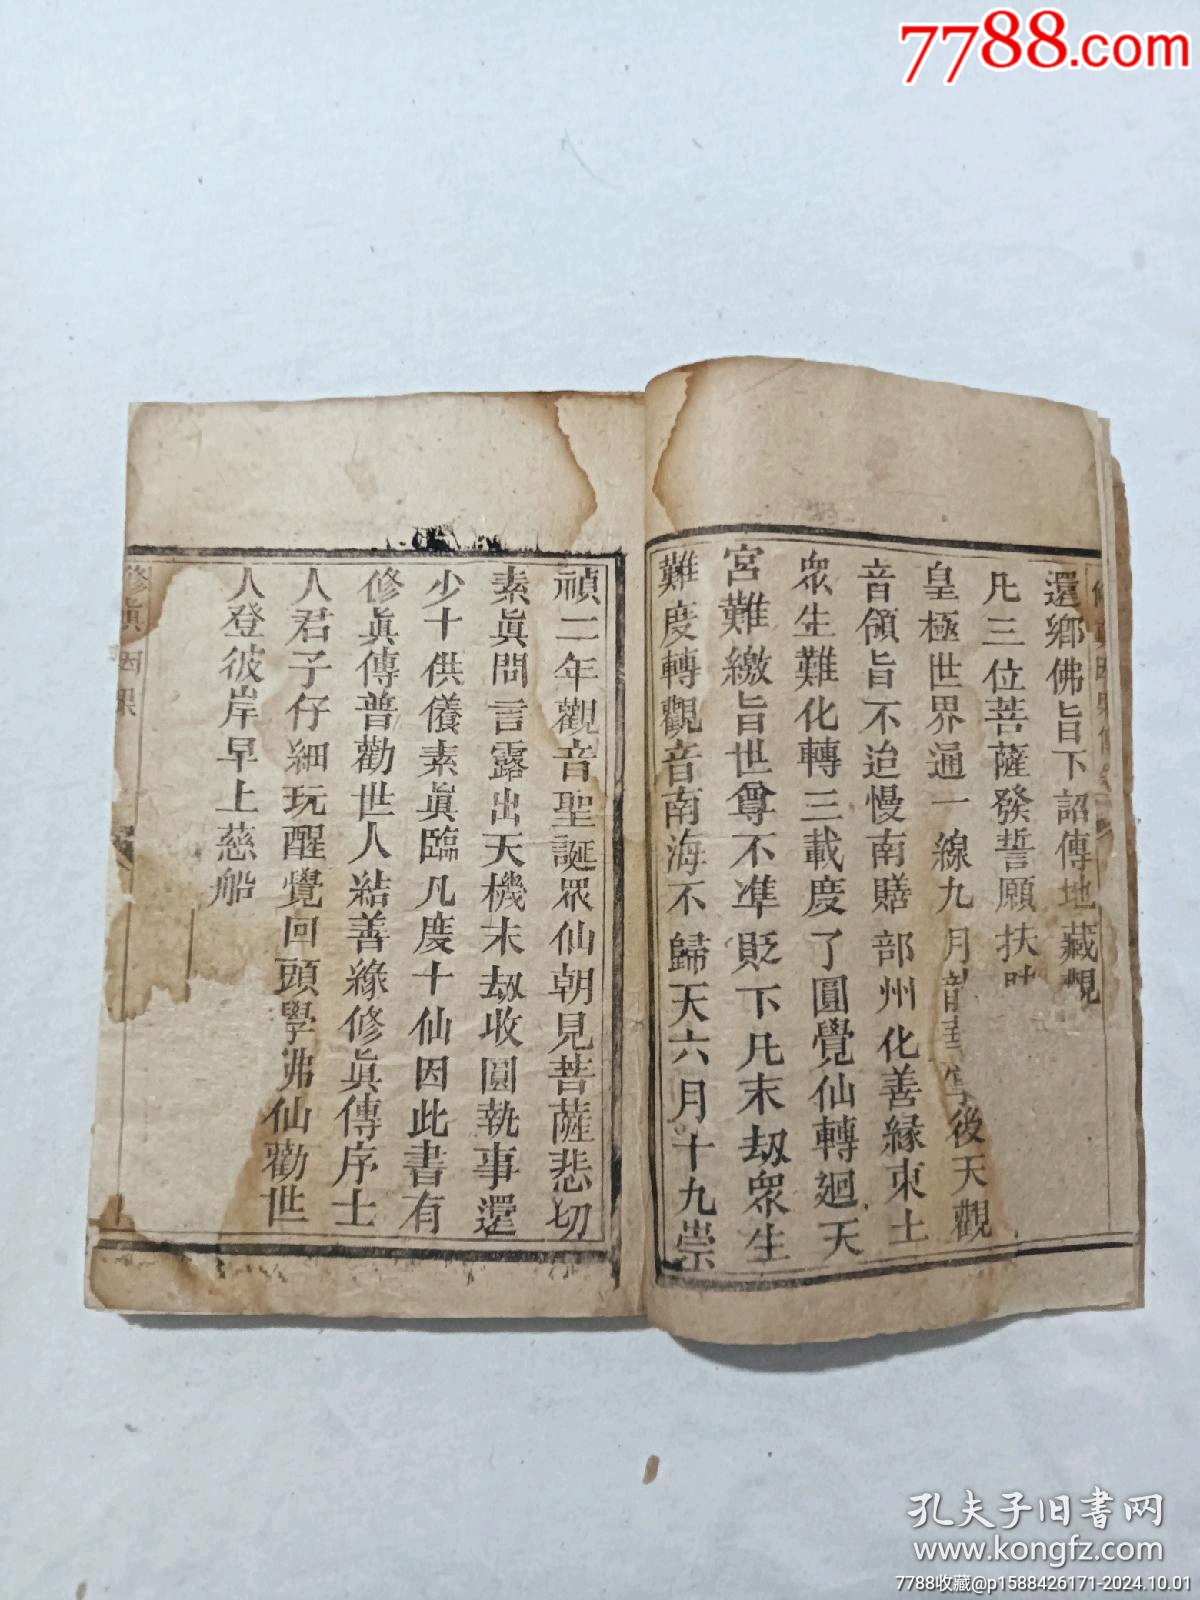 7788.com
還鄉佛旨下詔傳地藏觀
凡三位菩薩發誓願扶
皇極世界通一線九月龍後天觀
音領旨不迨慢南贍部州化善緣東土
眾生難化轉三載度了圓覺仙轉廻天
宮難繳旨世尊不凖貶下凡末刼眾生
難度轉觀音南海不歸天六月十九崇
禎二年觀音聖誕眾仙朝見菩薩悲切
素眞問言露出天機末刼收圓執事還
少十供儀素眞臨凡度十仙因此書有
修眞傳普勸世人結善緣修眞傳序士
人君子仔細玩醒覺回頭學沸仙勸世
人登彼岸早上慈船
修眞因果
孔夫子旧书网
www.kongfz.com
7788收藏@p1588426171-2024.10.01